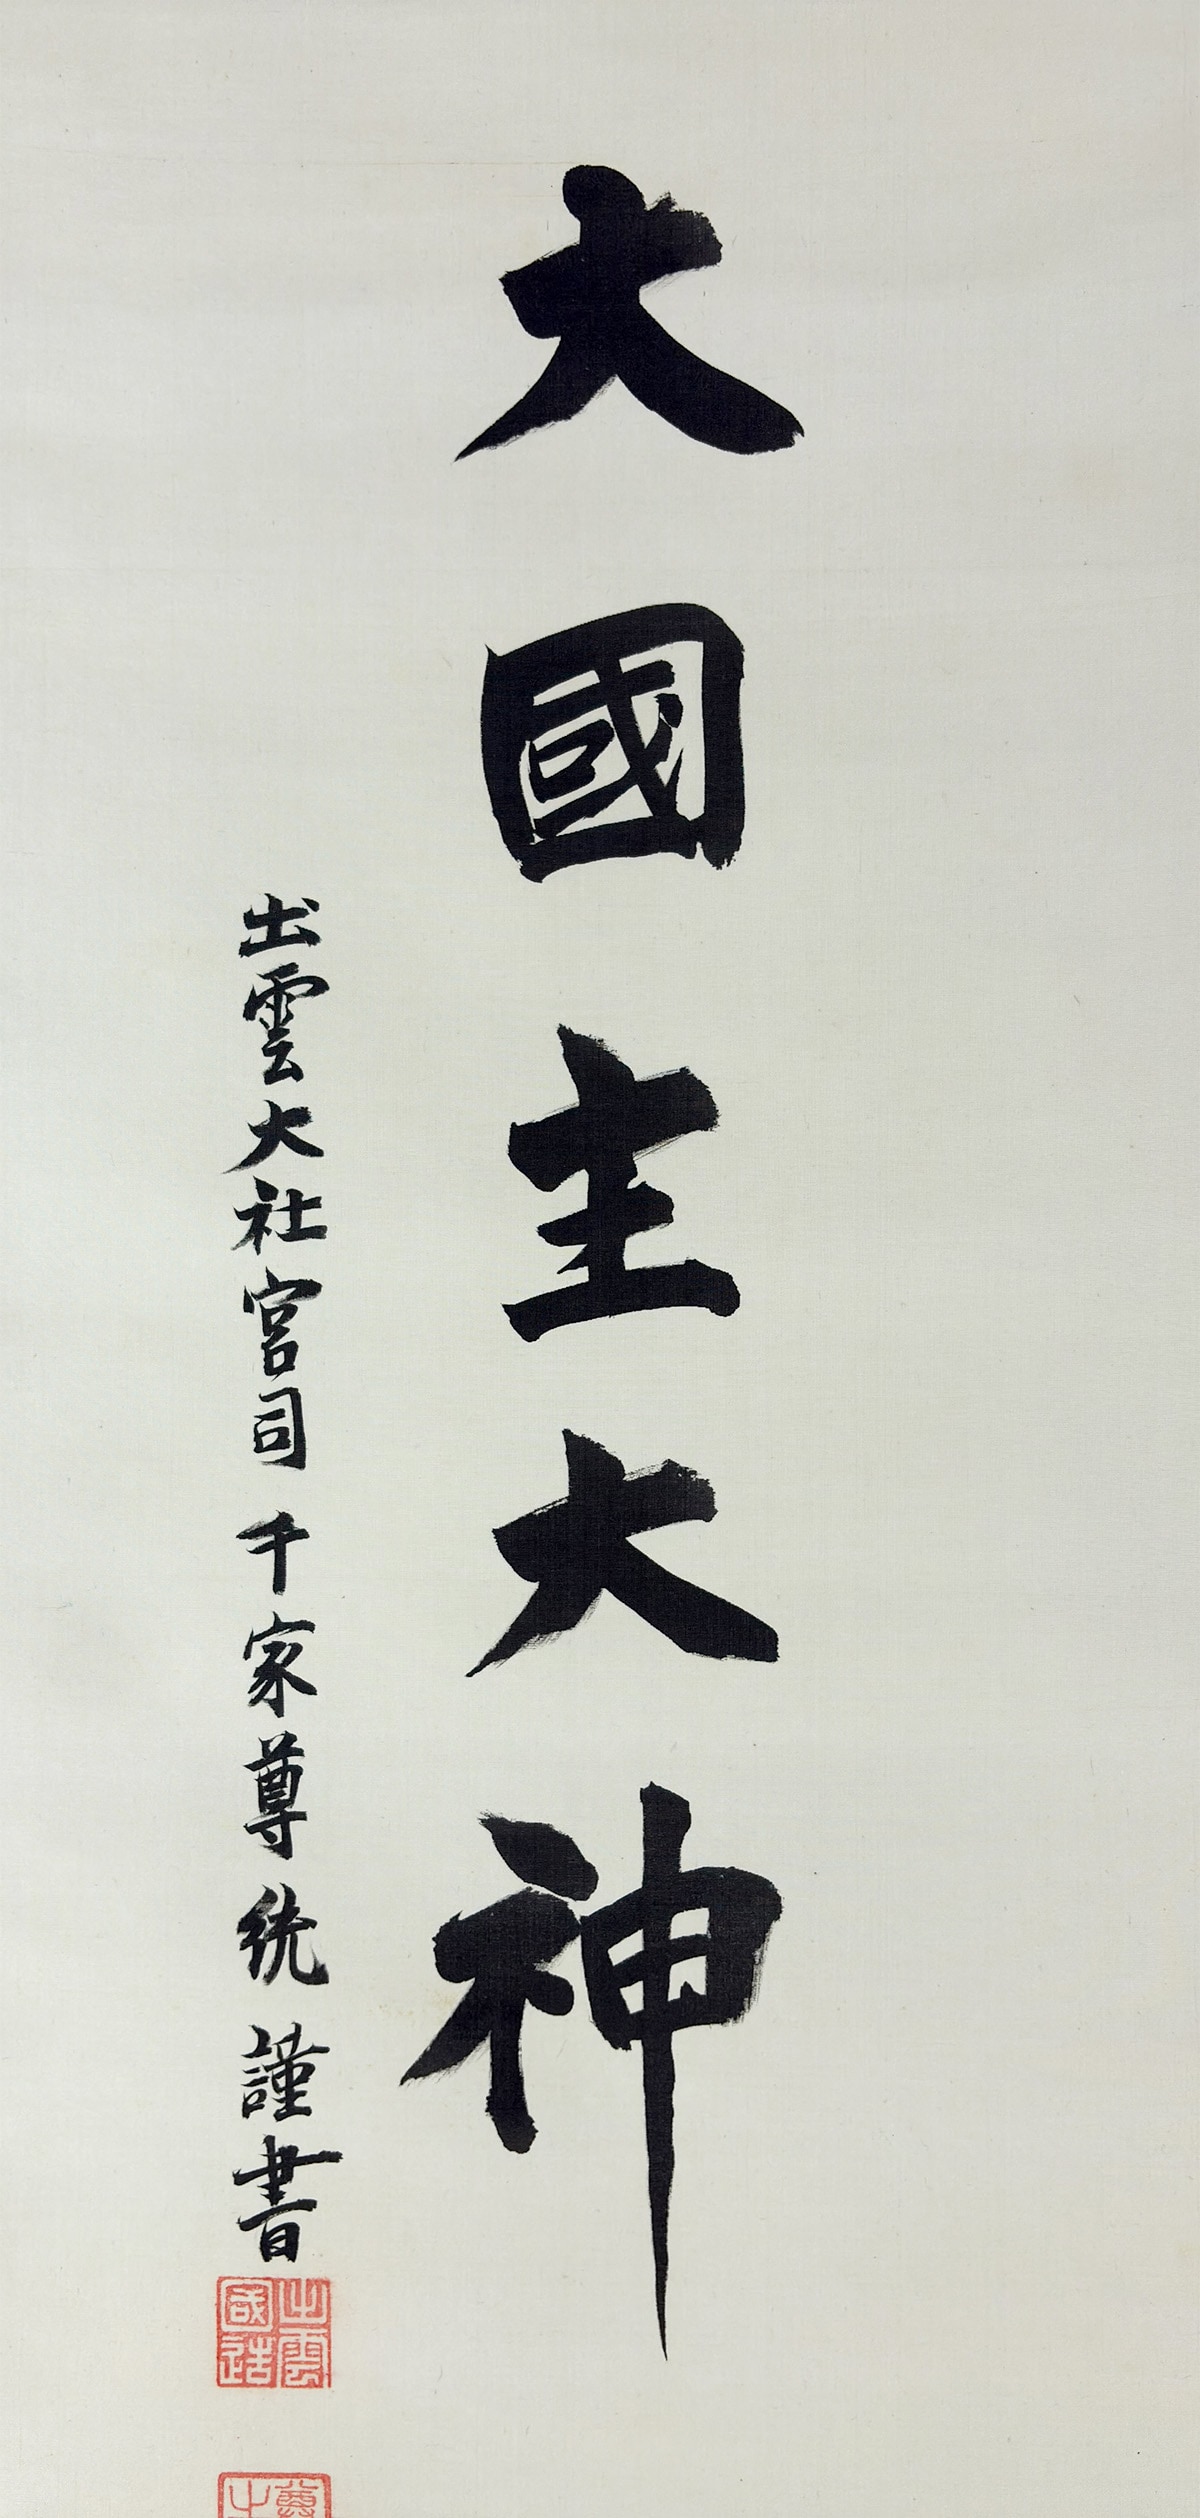 大國主大神
出雲大社宮司 千家尊統 謹書
出雲
國造